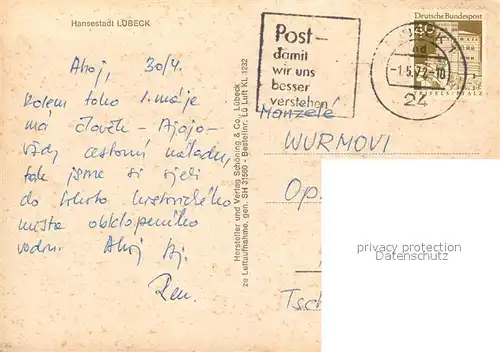 Hansestadt LÜBECK
Ahoj, 30/4.
Kolem toho 1. máje
má člověk – Ajajo –
vždy cestovní náladu,
tak jsme si vjeli
do tohoto historického
města obklopeného
vodou. Ahoj
Hersteller und Verlag Schöning & Co., Lübeck
zo Luftaufnahme, gen. SH 31560 - Bestellnr. Lü Luft KL 1232
Post-
damit
wir uns
besser
verstehen!
24
-1.5.72-10
Deutsche Bundespost
Manželé
WURMOVI
Op.
Tsch
privacy protection
AnsichtskartenVersand.com